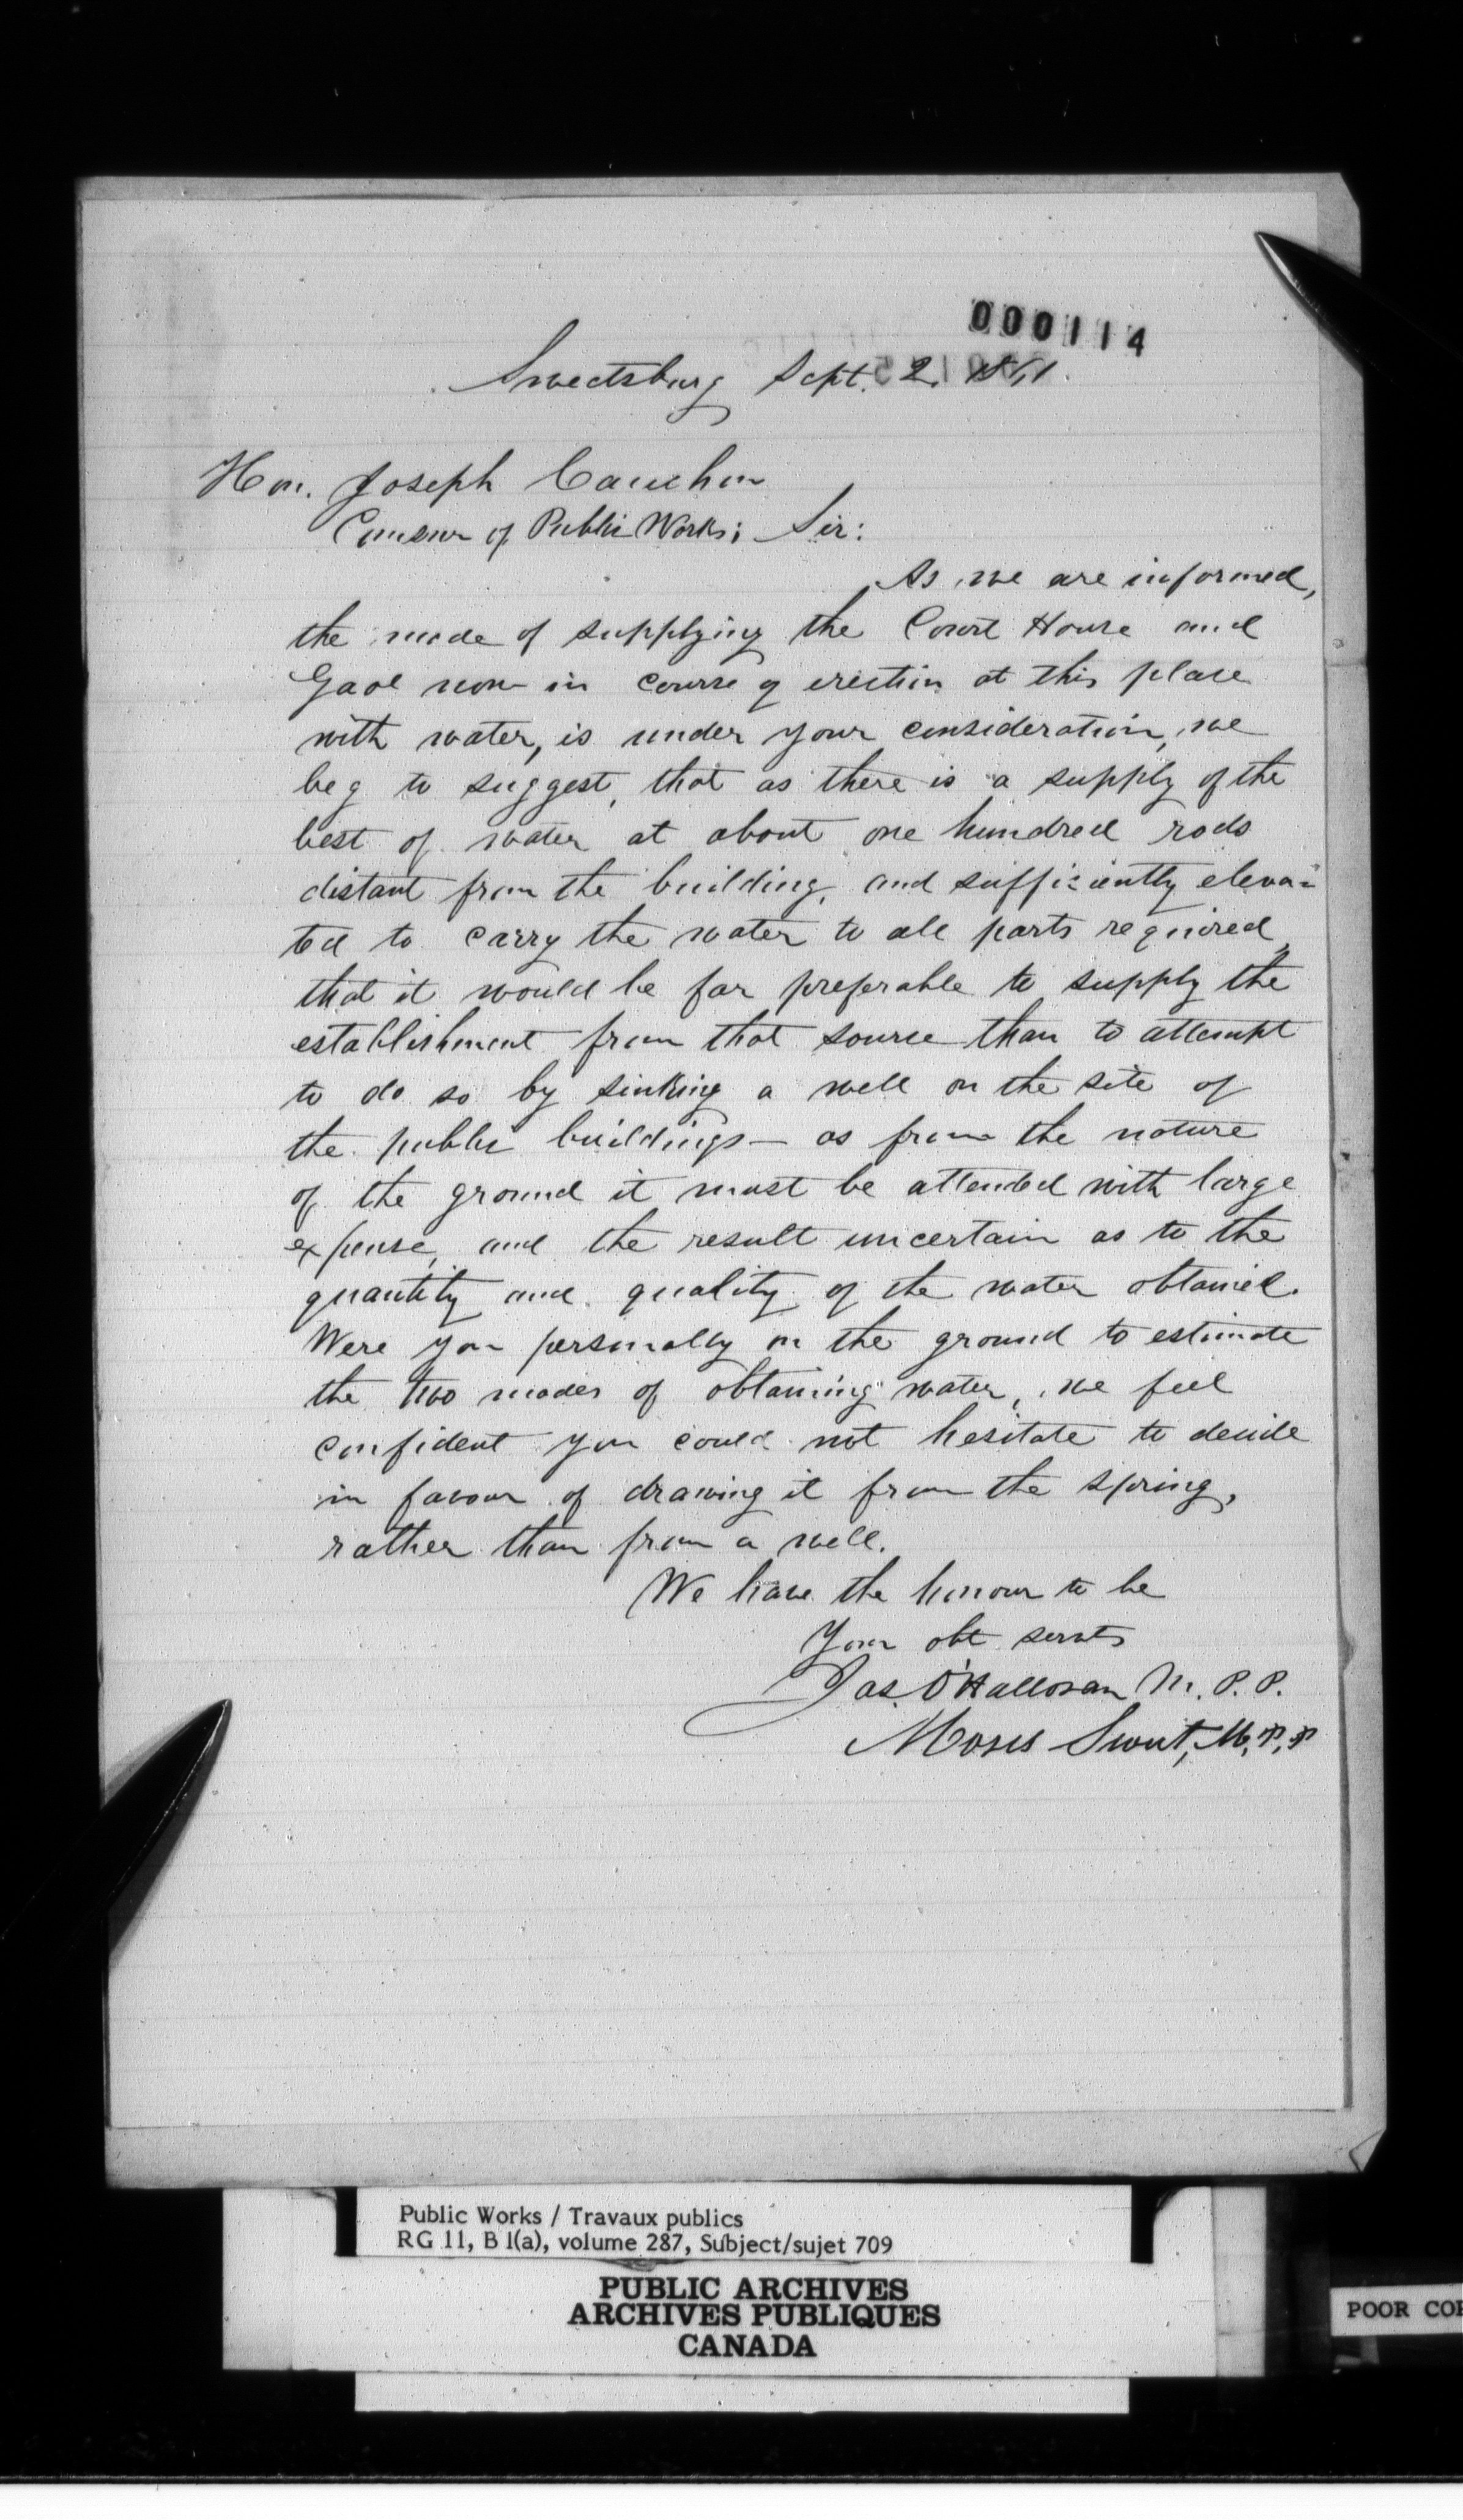 000114
Sweetsburg Sept. 2, 1861.
Hon. Joseph Cauchon
Comsnr of Public Works; Sir:
As we are informed,
the mode of supplying the Court House and
Gaol now in course of erection at this place
with water, is under your consideration, we
beg to suggest, that as there is a supply of the
best of water at about one hundred rods
distant from the building, and sufficiently eleva=
ted to carry the water to all parts required,
that it would be far preferable to supply the
establishment from that source than to attempt
to do so by sinking a well on the site of
the public buildings — as from the nature
of the ground it must be attended with large
expense, and the result uncertain as to the
quantity and quality of the water obtained.
Were you personally on the ground to estimate
the two modes of obtaining water, we feel
confident you could not hesitate to decide
in favour of drawing it from the spring,
rather than from a well.
We have the honour to be
Your obt servts
Jas. O'Halloran M.P.P.
Moses Sweet, M.P.P
Public Works / Travaux publics
RG 11, B 1(a), volume 287, Subject/sujet 709
PUBLIC ARCHIVES
ARCHIVES PUBLIQUES
CANADA
POOR COP